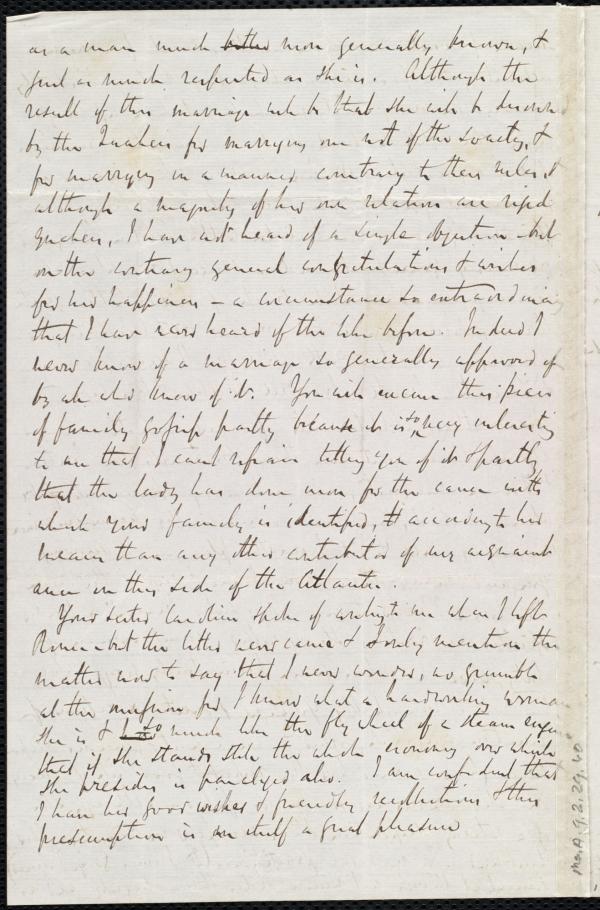 as a man much better more generally known, &
just as much respected as she is. Although the
result of this marriage will be that she will be disowned
by the Quakers for marrying one not of the society, &
for marrying in a manner contrary to their rules, &
although a majority of her own relations are rigid
Quakers, I have not heard of a single objection but
on the contrary general congratulations & wishes
for her happiness – a circumstance so extraordinary
that I have never heard of the like before. Indeed I
never knew of a marriage so generally approved of
by all who know of it. You will excuse this piece
of family gossip partly because it is so very interesting
to me that I can't refrain telling you of it & partly
that the lady has done more for the cause with
which your family is identified, according to her
means than any other contributor of my acquaint
ance on this side of the Atlantic.
Your sister Caroline spoke of writing to me when I left
Rome – but the letter never came & I only mention the
matter now to say that I never wonder, nor grumble
at the omission for I know what a hardworking woman
she is & so much like the fly wheel of a steam engine
that if she stands still the whole economy over which
she presides is paralyzed also. I am confident that
I have her good wishes & friendly recollections & this
presumption is in itself a great pleasure
Ms.A.9.2.29.40